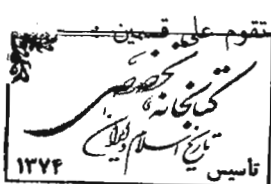 تقوم على قسمين :
کتابخانه تخصصی
تاریخ اسلام و ایران
تاسیس ۱۳۷۴